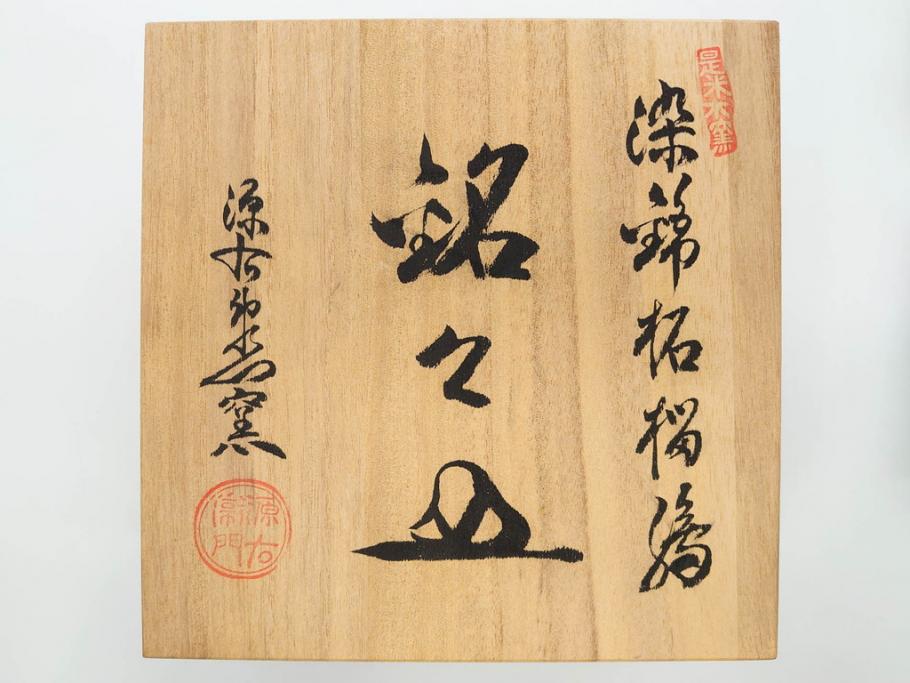 是米木窯
染錦柘榴
銘々皿
源右衛門窯
源右衛門